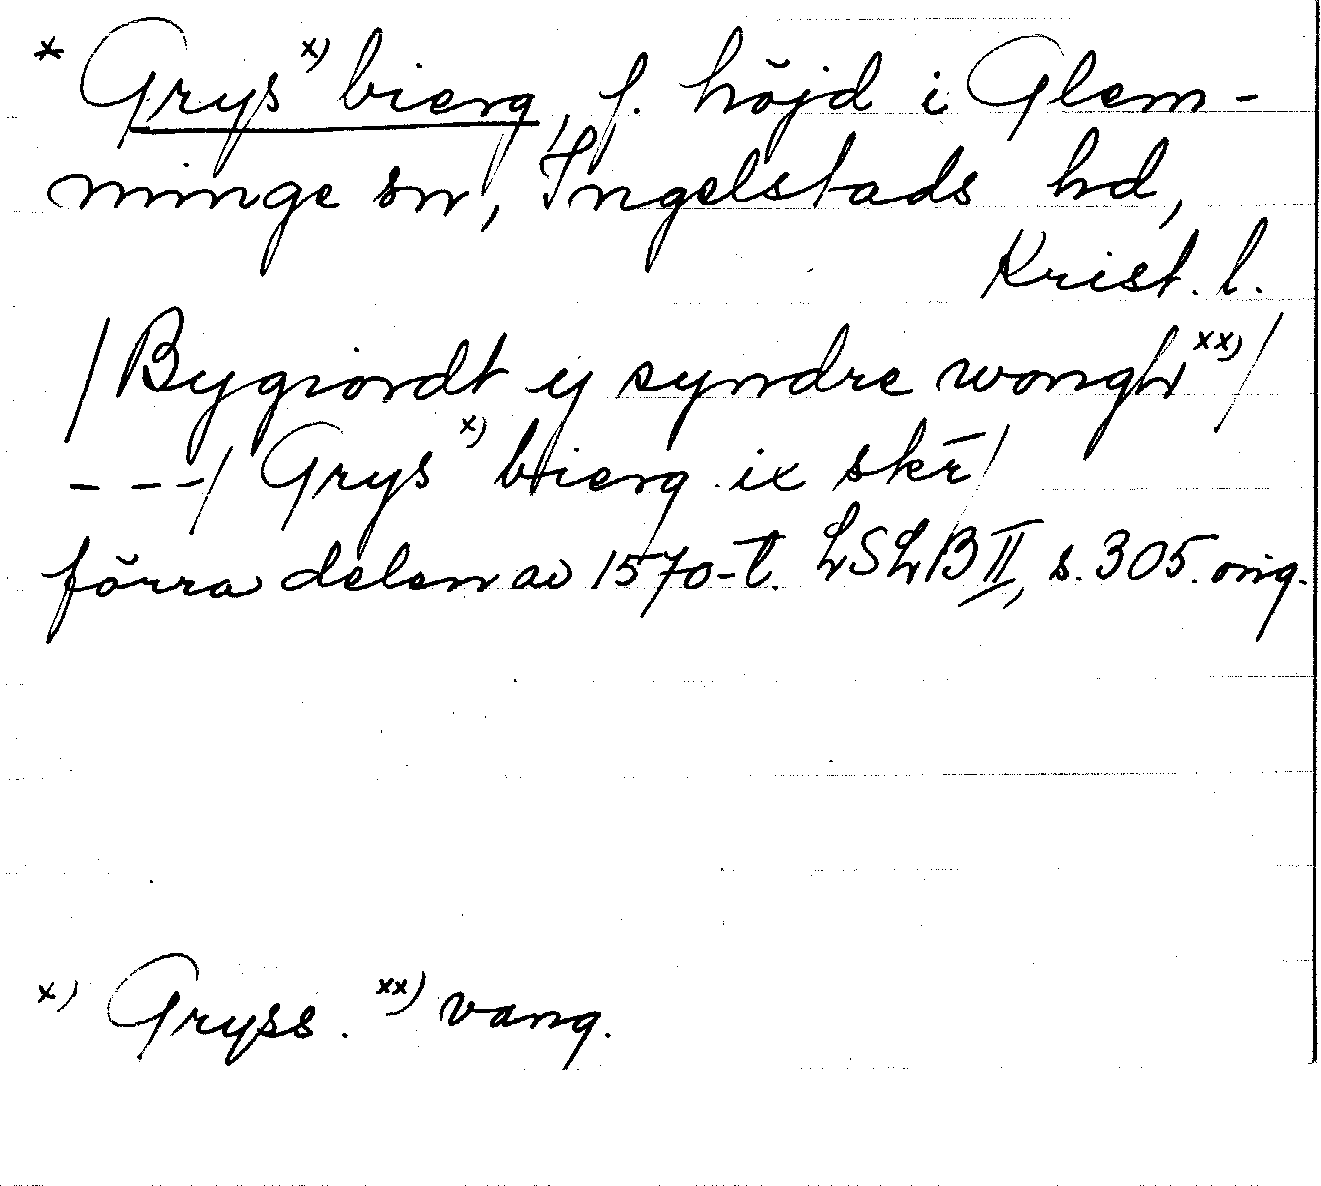 * Grys x) bierg, f. höjd i Glem-
minge sn, Ingelstads hd,
Krist. l.
/Bygiordt ij syndre wongh xx)/
---/ Grys x) bierg ix skr̄/
förra delen av 1570-t. LSLB II, s. 305. orig.
x) Gryss. xx) vang.